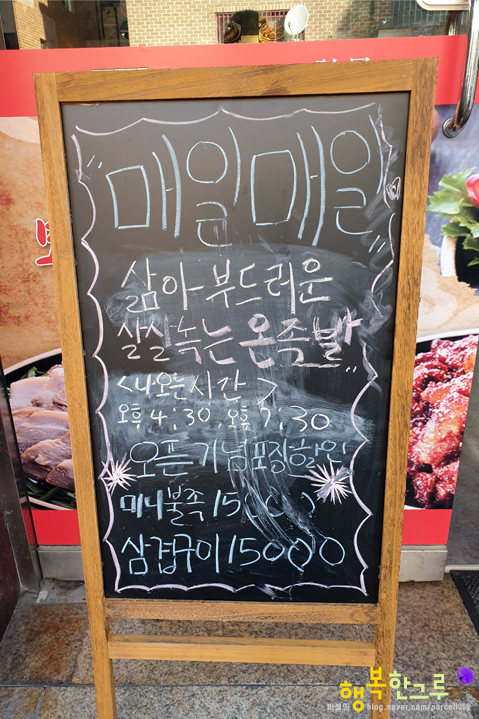 "매일매일
삶아 부드러운
살살녹는 온족발"
<나오는시간>
오후 4:30, 오후 7:30
오픈기념포장할인
미니불족 15000
삼겹구이 15000
행복한그루
퍼셀의 blog.naver.com/purcell312